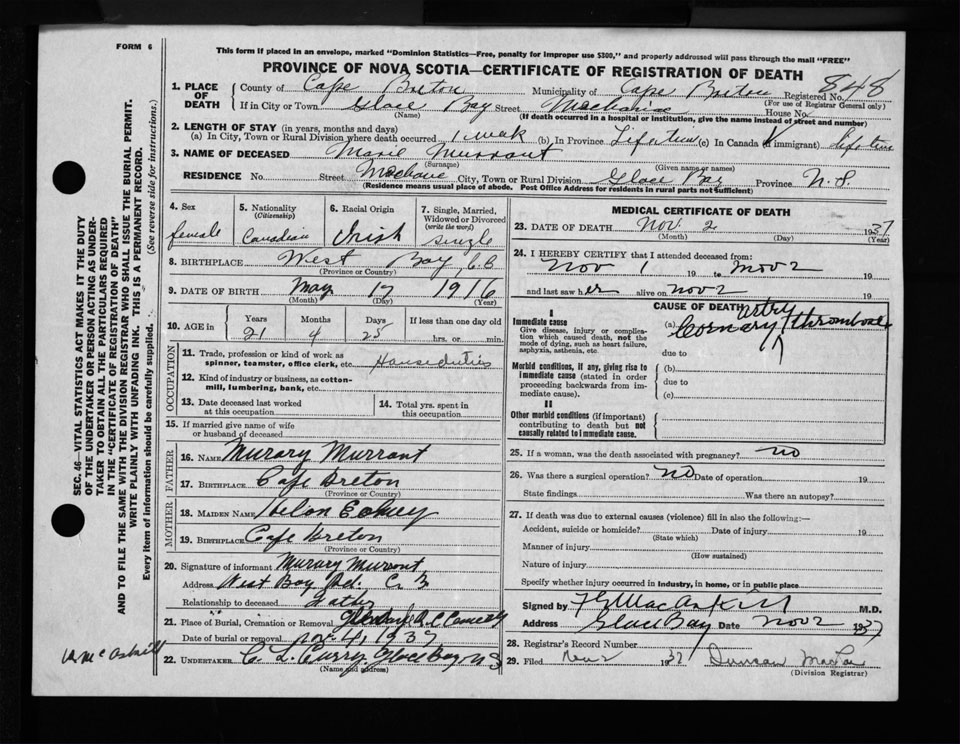 FORM 6
This form if placed in an envelope, marked "Dominion Statistics—Free, penalty for improper use $300," and properly addressed will pass through the mail "FREE"
PROVINCE OF NOVA SCOTIA—CERTIFICATE OF REGISTRATION OF DEATH
848
1. PLACE OF DEATH County of Cape Breton Municipality of Cape Breton Registered No.
(For use of Registrar General only)
If in City or Town Glace Bay Street House No.
(Name) (If death occurred in a hospital or institution, give the name instead of street and number)
2. LENGTH OF STAY (in years, months and days)
(a) In City, Town or Rural Division where death occurred 1 week (b) In Province Life time (c) In Canada (if immigrant) life time
3. NAME OF DECEASED Marie Murrant
(Surname) (Given name or names)
RESIDENCE No. Street City, Town or Rural Division Glace Bay Province N.S.
(Residence means usual place of abode. Post Office Address for residents in rural parts not sufficient)
4. Sex female
5. Nationality (Citizenship) Canadian
6. Racial Origin Irish
7. Single, Married, Widowed or Divorced (write the word) single
8. BIRTHPLACE West Bay, C.B
(Province or Country)
9. DATE OF BIRTH May 17 1916
(Month) (Day) (Year)
10. AGE in Years Months Days If less than one day old
21 4 25 hrs. or min.
OCCUPATION
11. Trade, profession or kind of work as spinner, teamster, office clerk, etc. House duties
12. Kind of industry or business, as cotton-mill, lumbering, bank, etc.
13. Date deceased last worked at this occupation
14. Total yrs. spent in this occupation
15. If married give name of wife or husband of deceased
FATHER
16. NAME Murary Murrant
17. BIRTHPLACE Cape Breton
(Province or Country)
MOTHER
18. MAIDEN NAME Helon
19. BIRTHPLACE Cape Breton
(Province or Country)
20. Signature of informant Murary Murrant
Address West Bay Rd. C.B
Relationship to deceased father
21. Place of Burial, Cremation or Removal
Date of burial or removal Nov. 4, 1937
22. UNDERTAKER C. L. Curry. Glace Bay N S
(Name and address)
MEDICAL CERTIFICATE OF DEATH
23. DATE OF DEATH Nov. 2 1937
(Month) (Day) (Year)
24. I HEREBY CERTIFY that I attended deceased from:
Nov 1 19 to Nov 2 19
and last saw her alive on nov 2 19
CAUSE OF DEATH
I
Immediate cause
Give disease, injury or complication which caused death, not the mode of dying, such as heart failure, asphyxia, asthenia, etc.
(a) Cornary artry thrombosis
due to
Morbid conditions, if any, giving rise to immediate cause (stated in order proceeding backwards from immediate cause).
(b)
due to
(c)
II
Other morbid conditions (if important) contributing to death but not causally related to immediate cause.
25. If a woman, was the death associated with pregnancy? no
26. Was there a surgical operation? no Date of operation 19
State findings Was there an autopsy?
27. If death was due to external causes (violence) fill in also the following:—
Accident, suicide or homicide? Date of injury 19
(State which)
Manner of injury
(How sustained)
Nature of injury
Specify whether injury occurred in industry, in home, or in public place
Signed by F G MacAskill M.D.
Address Glace Bay Date Nov 2 1937
28. Registrar's Record Number
29. Filed Nov 2 1937 Duncan
(Division Registrar)
SEC. 46—VITAL STATISTICS ACT MAKES IT THE DUTY
OF THE UNDERTAKER OR PERSON ACTING AS UNDER-
TAKER TO OBTAIN ALL THE PARTICULARS REQUIRED
IN THE "CERTIFICATE OF REGISTRATION OF DEATH"
AND TO FILE THE SAME WITH THE DIVISION REGISTRAR WHO SHALL ISSUE THE BURIAL PERMIT.
WRITE PLAINLY WITH UNFADING INK. THIS IS A PERMANENT RECORD.
Every item of information should be carefully supplied. (See reverse side for instructions.)